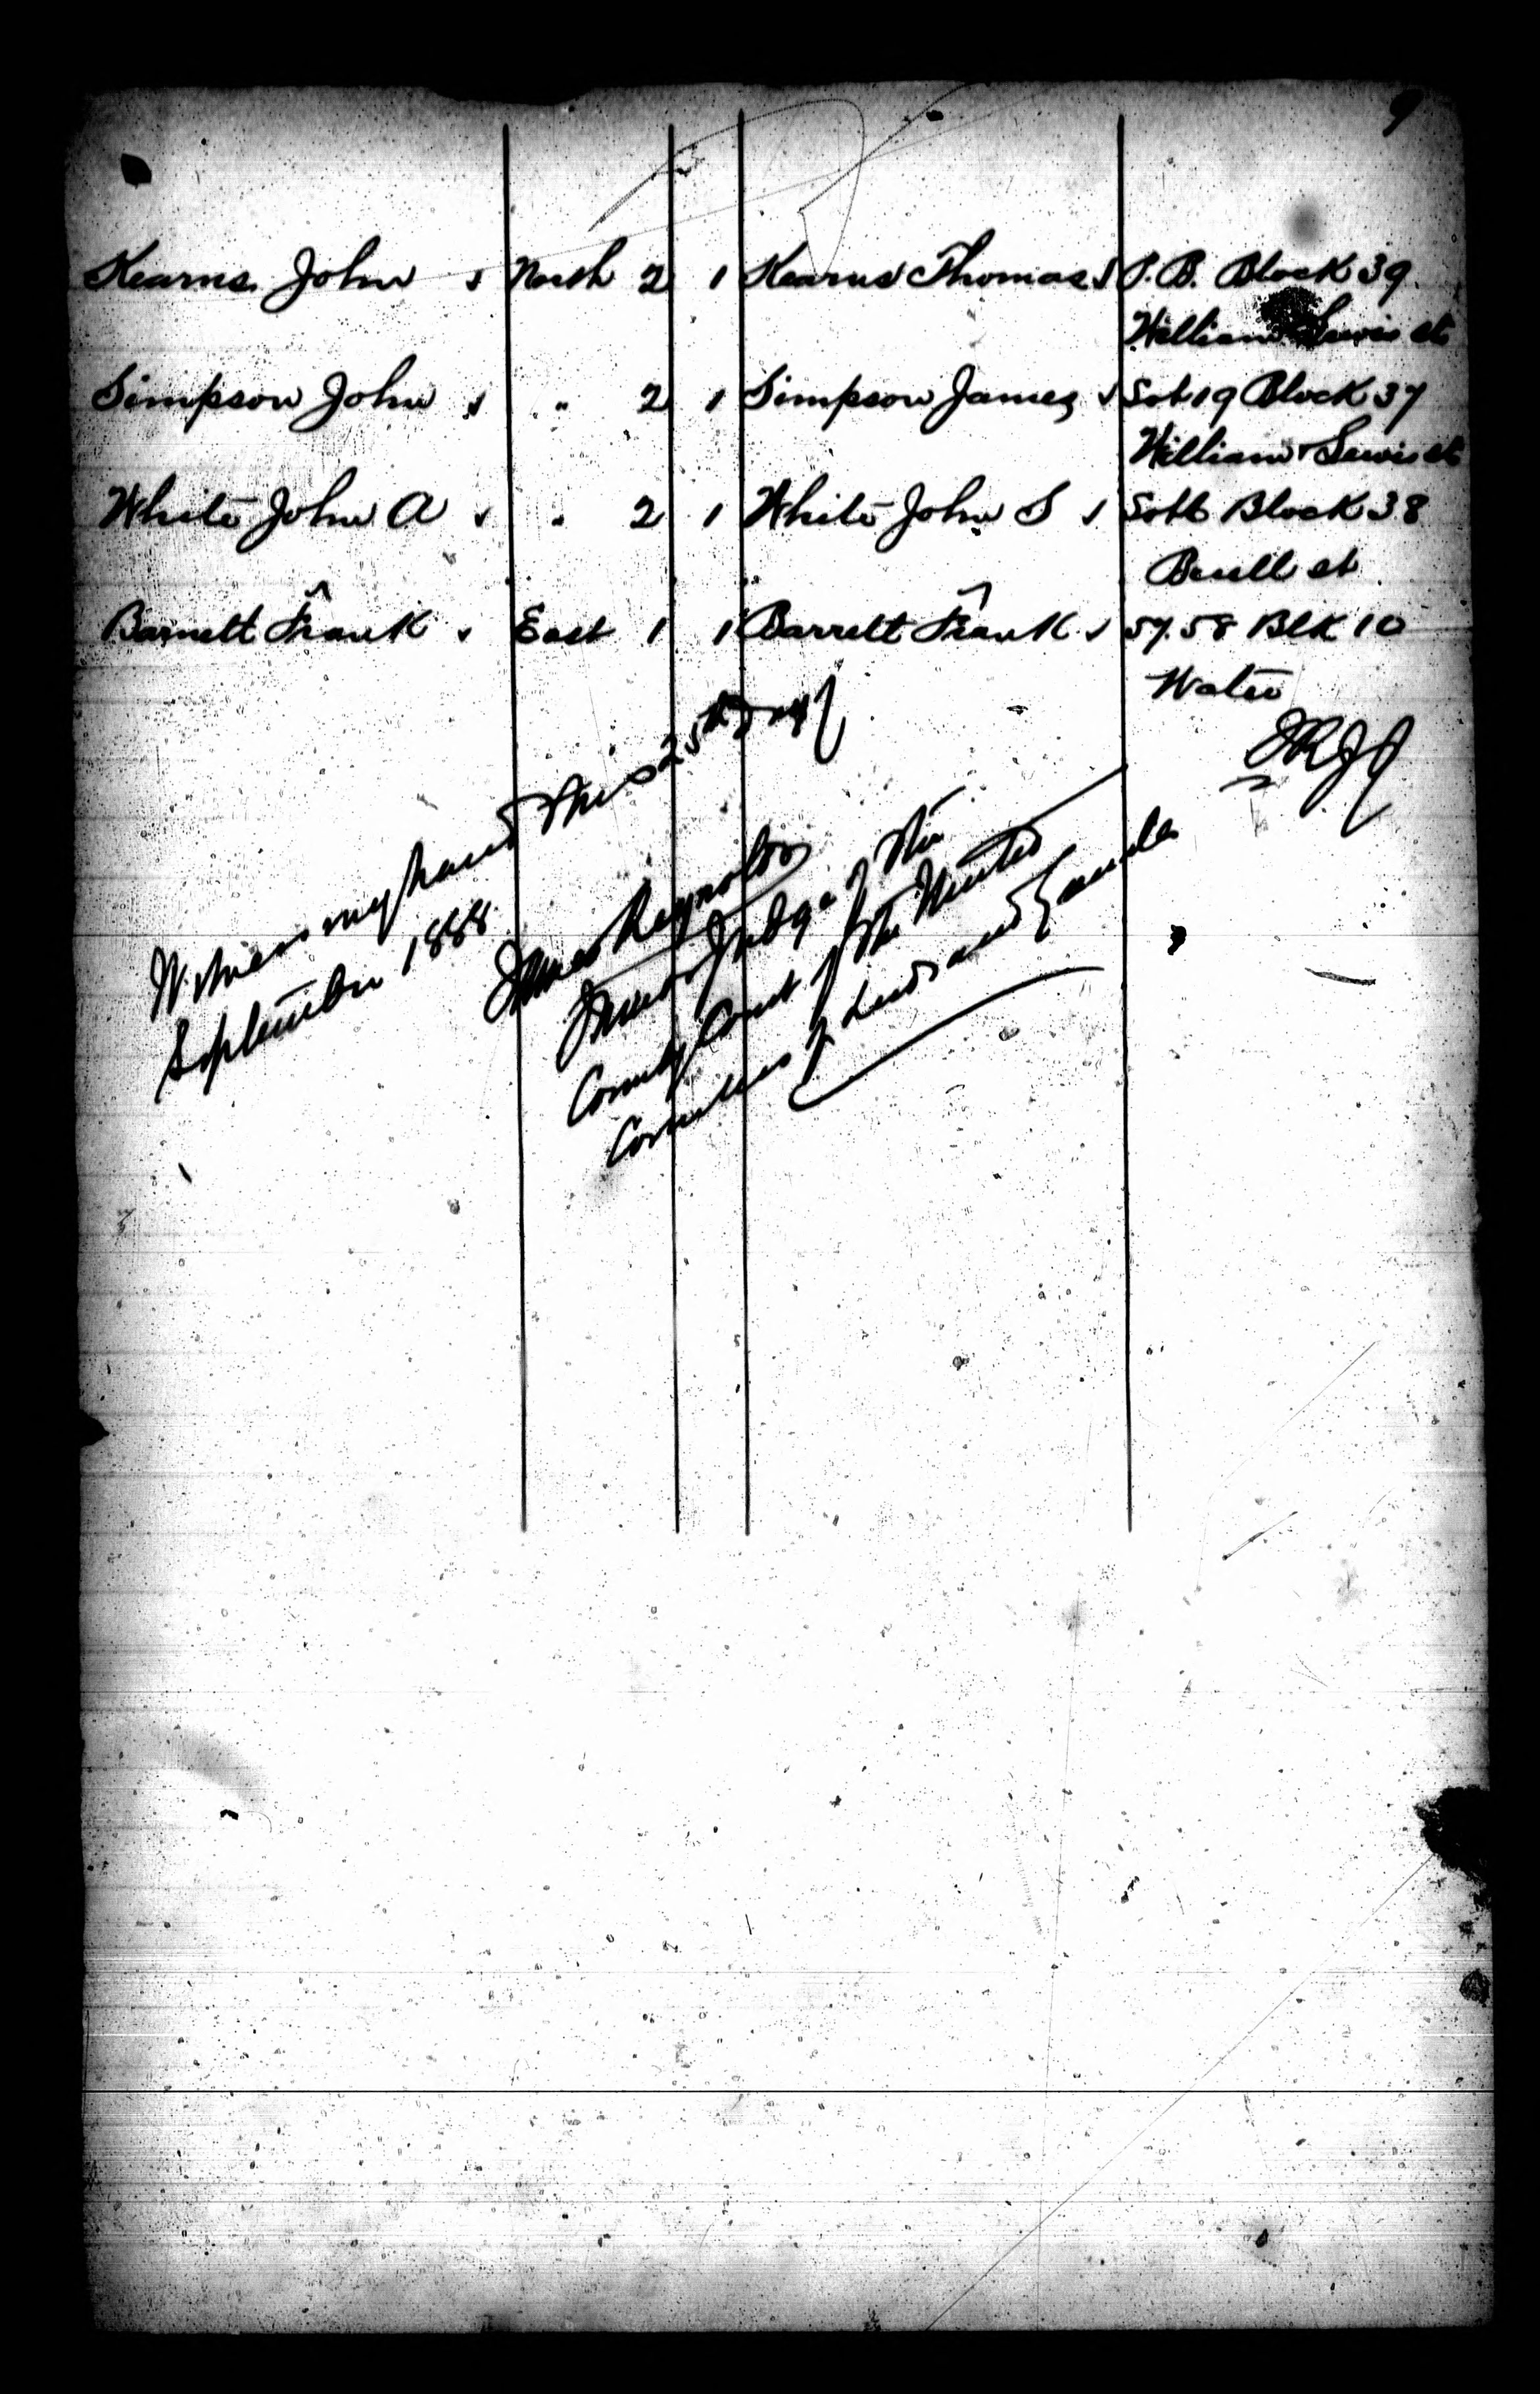 9
Kearns John ✓ North 2 1 Kearns Thomas ✓ P. B. Block 39
William Lewis st
Simpson John ✓ " 2 1 Simpson James ✓ Lot 19 Block 37
William Lewis st
White John A ✓ " 2 1 White John S ✓ Block 38
Buell st
Barnett Frank ✓ East 1 1 Barrett Frank ✓ 57. 58 Blk 10
Water
JRJJ
Witness my hand this 25th Day of
September 1888
James Reynolds
Junior Judge of the
County Court of the United
Counties of Leeds and Grenville